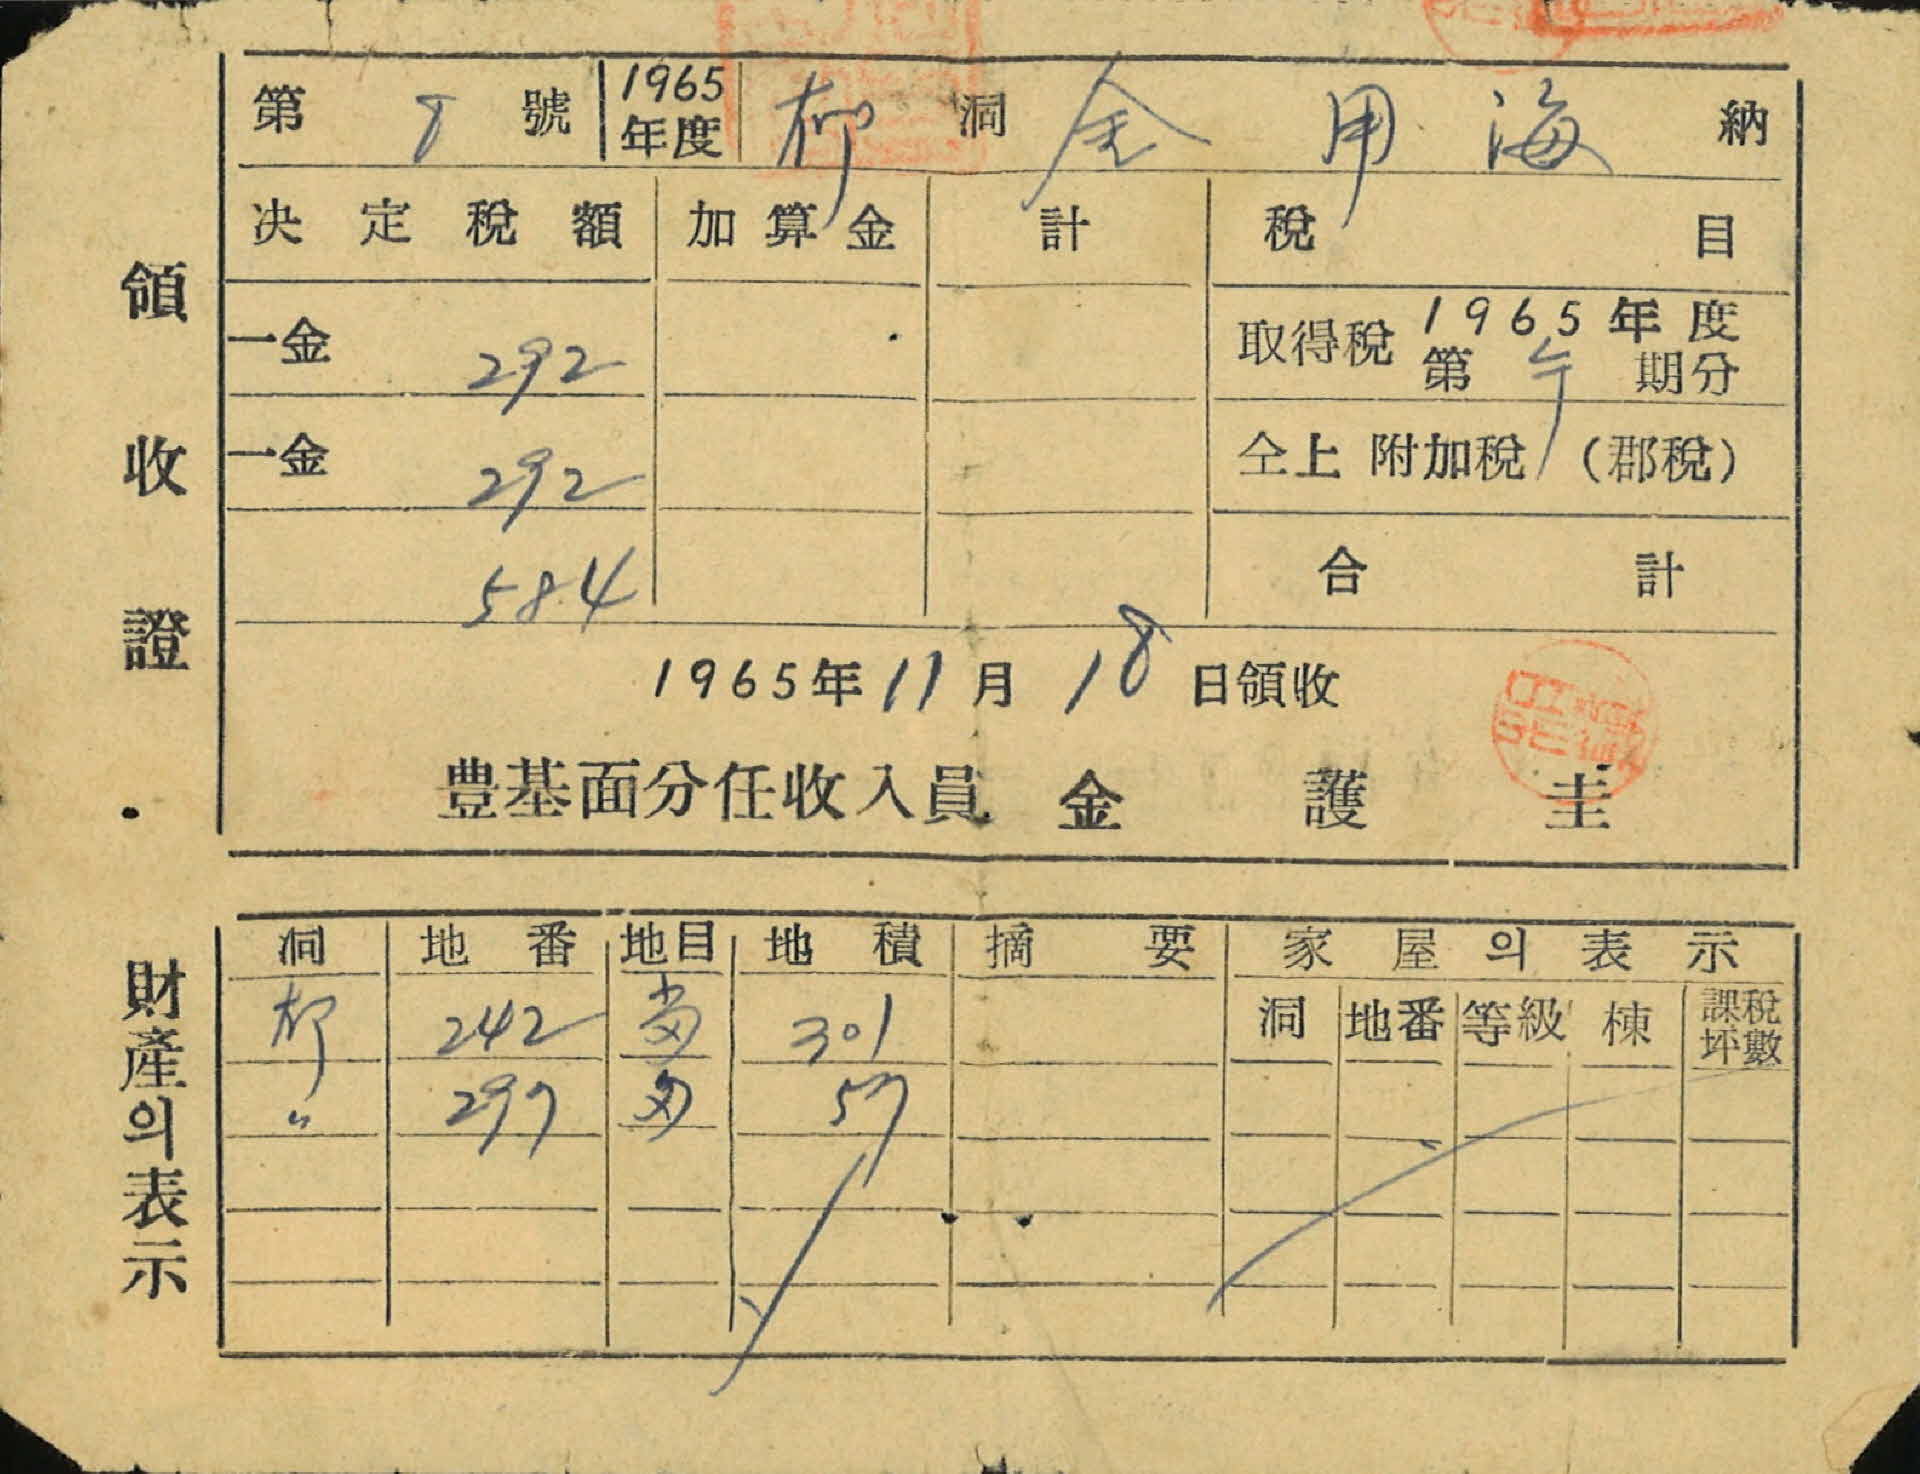 領收證
第 8 號 1965年度 柳 洞 金 用 海 納
決定稅額 加算金 計 稅目
一金 292 取得稅 1965年度 第 期分
一金 292 仝上 附加稅 (郡稅)
584 合計
1965年 11月 18日領收
豊基面分任收入員 金 護 圭
財產의表示
洞 地番 地目 地積 摘要 家屋의表示
洞 地番 等級 棟 課稅坪數
柳 242 301
〃 297 57